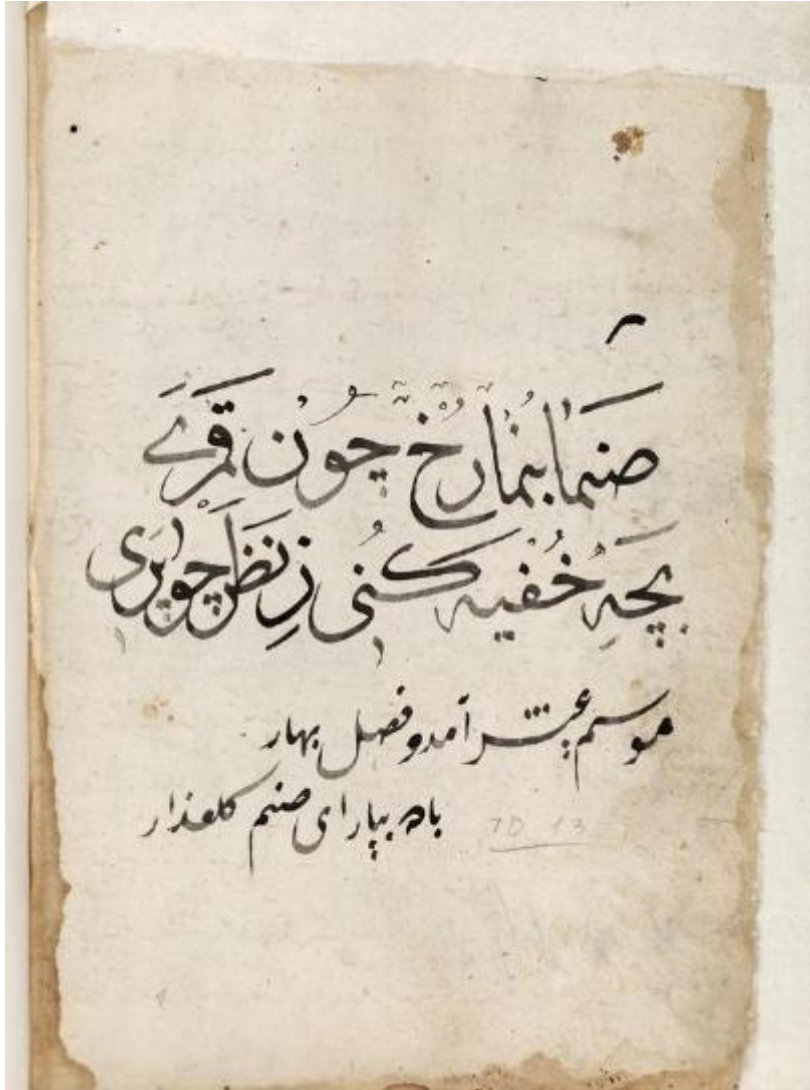 صنما بنما رخ چون قمرے
بچه خفیه کنی ز نظر چو پری
موسم عیش آمد و فصل بهار
باده بیار ای صنم کلعذار
7D 13